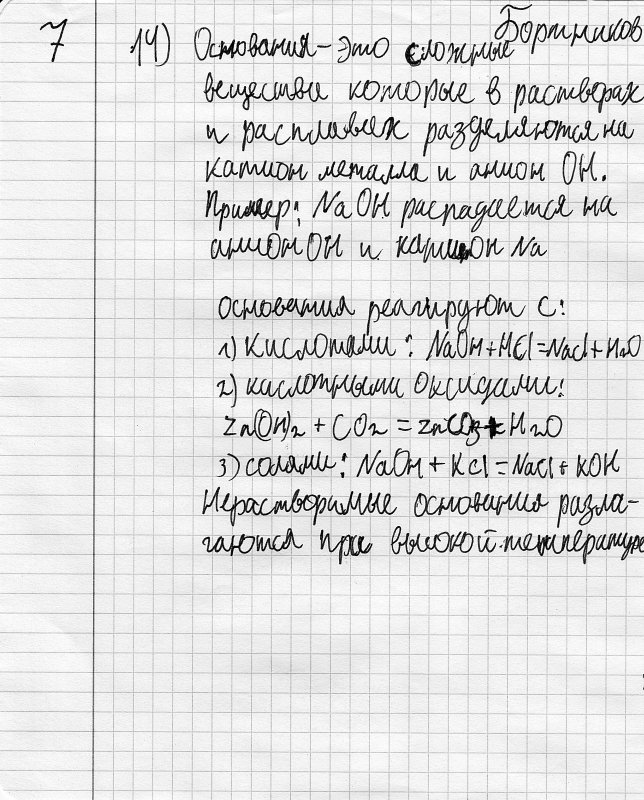 Бортников
7 14) Основания - это сложные
вещества которые в растворах
и расплавах разделяются на
катион металла и анион OH.
Пример: NaOH распадается на
анион OH и катион Na
основания реагируют с:
1) кислотами: NaOH + HCl = NaCl + H2O
2) кислотными оксидами:
Zn(OH)2 + CO2 = ZnCO3 + H2O
3) солями: NaOH + KCl = NaCl + KOH
Нерастворимые основания разла-
гаются при высокой температуре